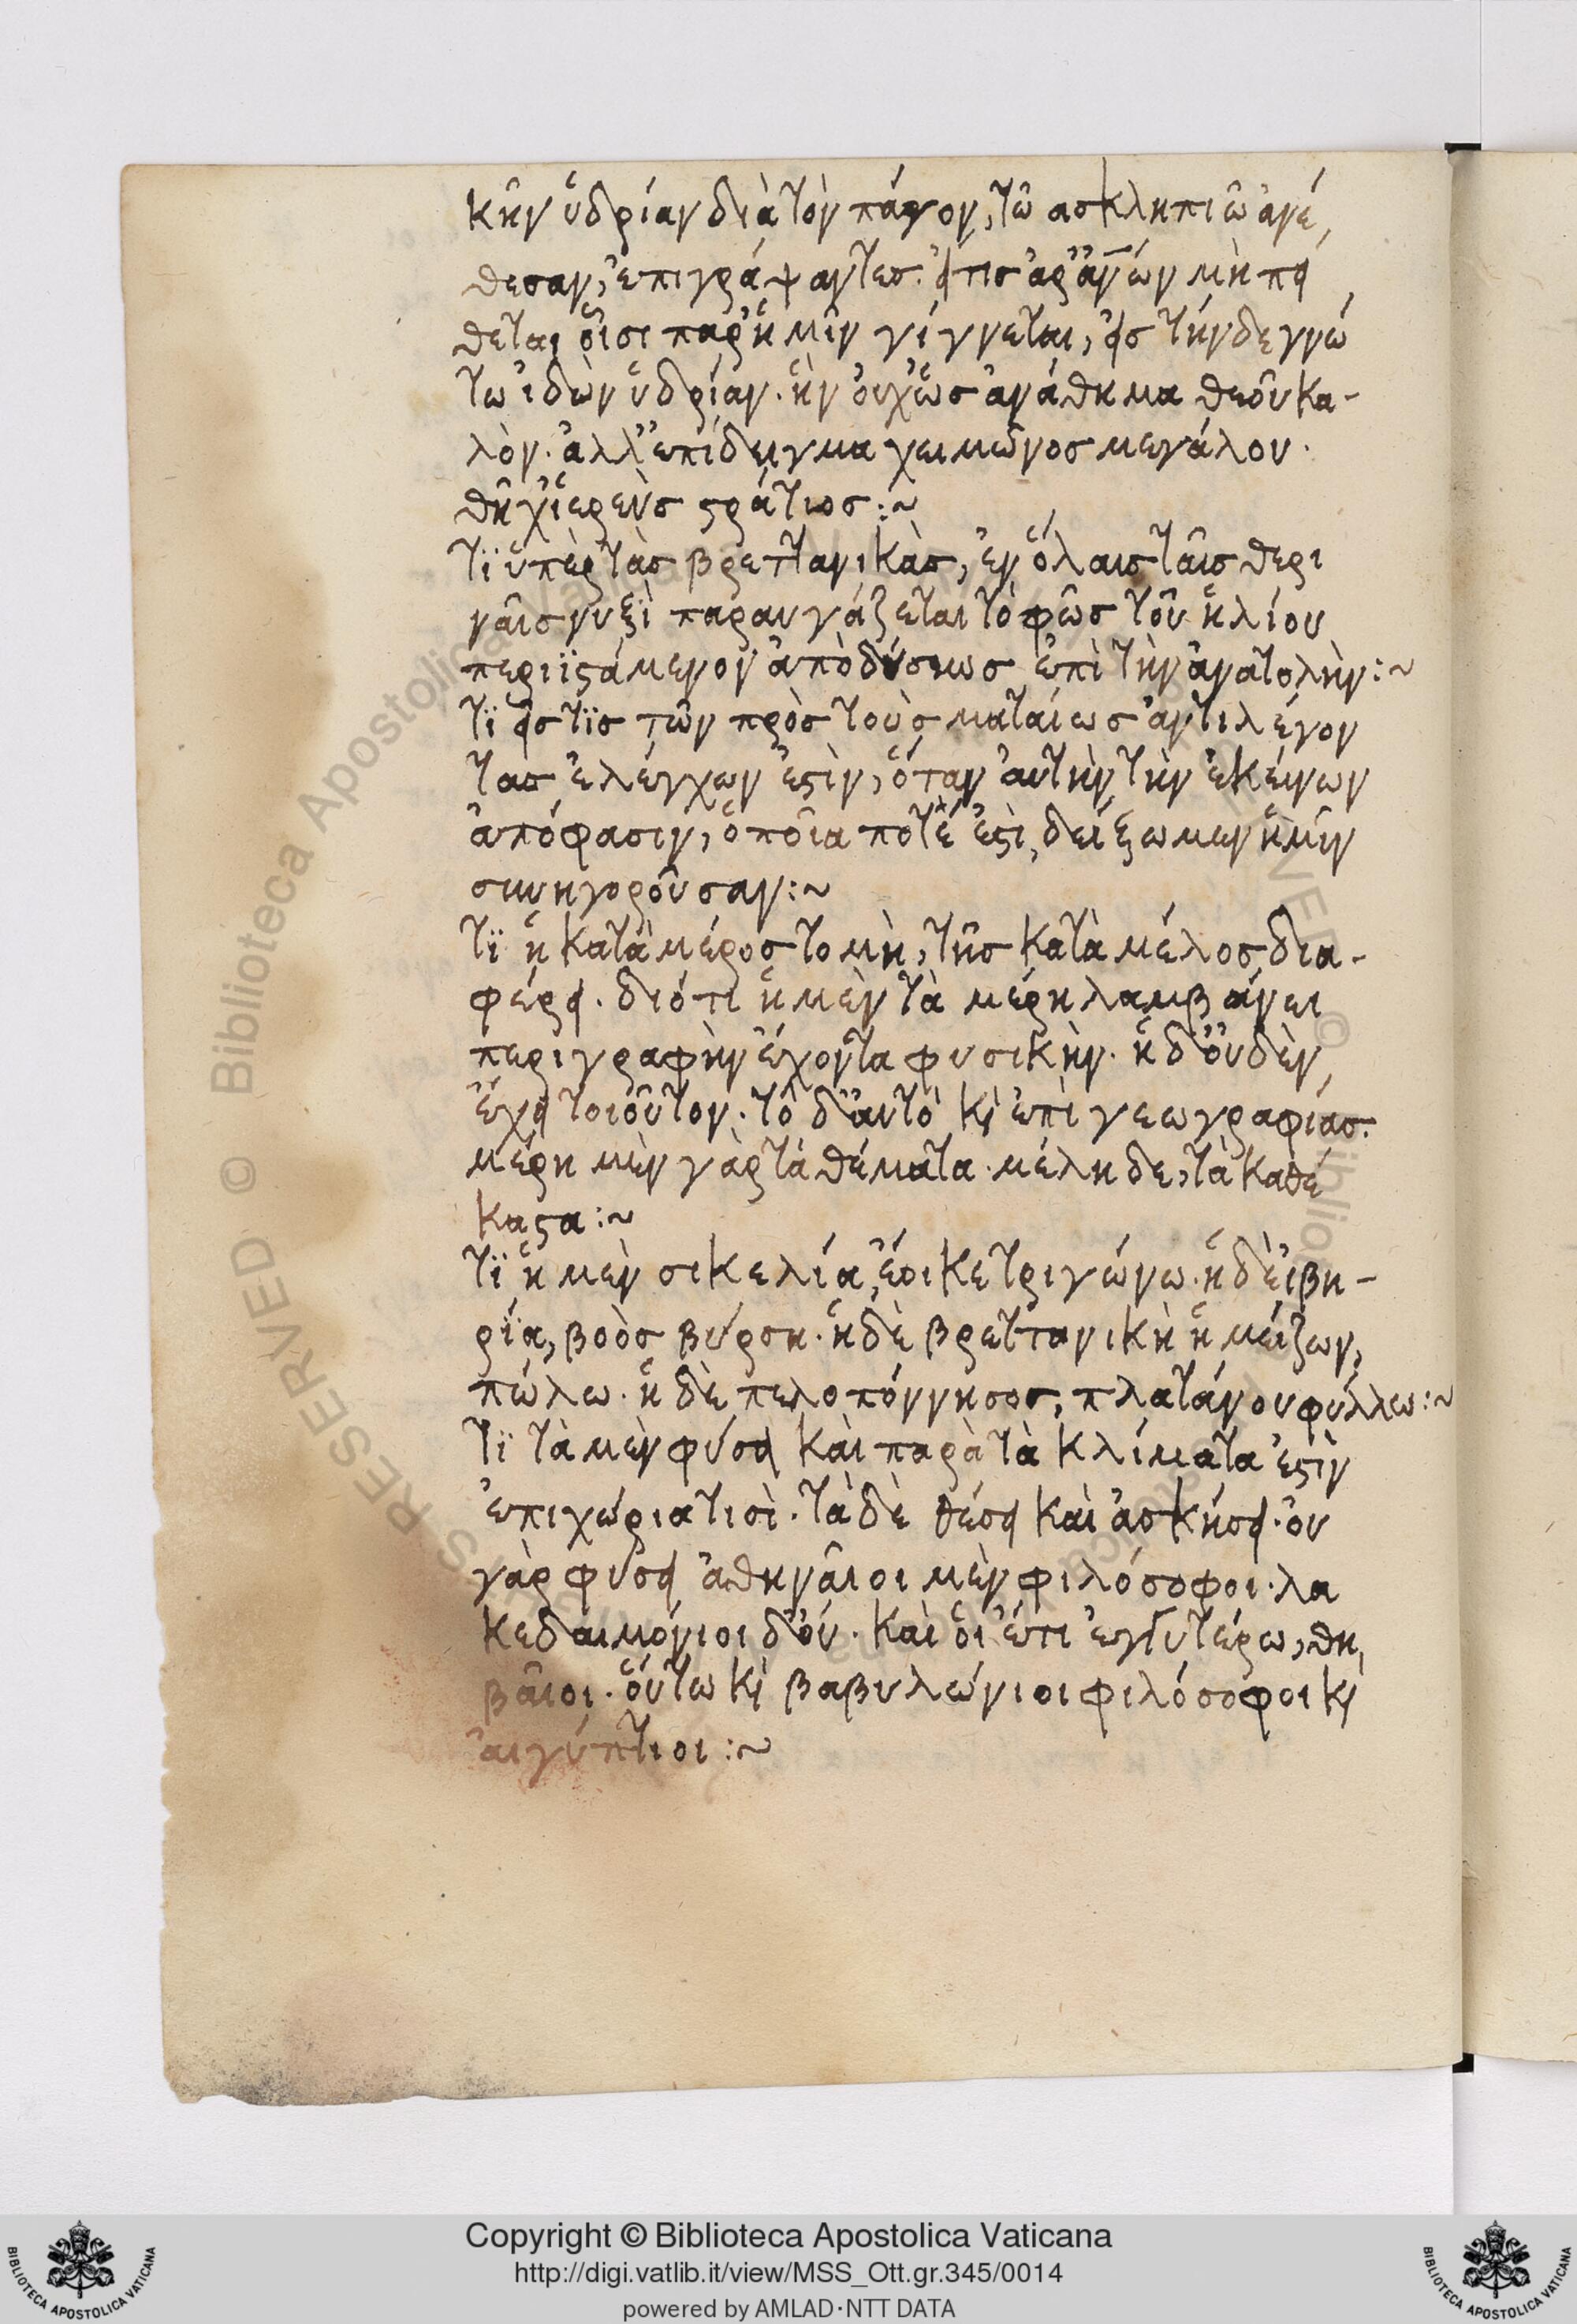 κῆν ὑδρίαν διὰ τὸν πάγον, τῶ ασκληπιῶ ἀνέ
θεσαν, ἐπιγράψαντες. εἴ τις ἀρ' ἀν̅ων μὴ πεί
θεται οἷσι παρ' ἡμῖν γίγνεται, εἰς τήνδε γνώ
τω ἰδὼν ὑδρίαν. ἣν ὀυχ' ὡς ἀνάθημα θεοῦ κα-
λὸν. ἀλλ' ἐπίδειγμα χειμῶνος μεγάλου.
θῆχ' ἱερεὺς ϛράτιος:~
τϊ ὑπὲρ τὰς βρεττανικὰς, ἐν ὅλαις ταῖς θερι
ναῖς νυξὶ παραυγάζεται τὸ φῶς τοῦ ἡλίου
περιϊϛάμενον ἀπὸ δύσεως ἐπὶ τὴν ἀνατολὴν:~
τϊ εἷς τϊς τῶν πρὸς τοὺς ματαίως ἀντιλέγον
τας ἐλέγχων ἐϛὶν, ὅταν ἀυτὴν τὴν ἐκείνων
ἀπόφασιν, ὁποῖα ποτέ ἐϛι, δείξωμεν ἡμῖν
συνηγοροῦσαν:~
τϊ ἡ κατὰ μέρος τομὴ, τῆς κατὰ μέλος δια-
φέρει. διότι ἡ μὲν τὰ μέρη λαμβάνει
περιγραφὴν ἔχοντα φυσικὴν. ἡ δ' ὀυδὲν
ἔχει τοιοῦτον. τὸ δ' ἀυτὸ κὶ ἐπὶ γεωγραφίας.
μέρη μὲν γὰρ τὰ θέματα. μέλη δε, τὰ καθέ
καϛα:~
τϊ ἡ μὲν σικελία, ἔοικε τριγώνω. ἡ δὲ ἰβη-
ρϊα, βοὸς βύρση. ἡ δὲ βρεττανικὴ ἡ μείζων,
πώλω. ἡ δὲ πελοπόννησος, πλατάνου φύλλω:~
τϊ τὰ μὲν φύσει καὶ παρὰ τὰ κλίματα ἐϛὶν
ἐπιχώρια τισὶ. τὰ δὲ θέσει καὶ ἀσκήσει. ὀυ
γὰρ φύσει ἀθηναῖοι μὲν φιλόσοφοι. λα
κεδαιμόνιοι δ' ὄυ. καὶ ὁι ἔτι ἐγγυτέρω, θη
βαῖοι. ὅυτω κὶ βαβυλώνιοι φιλόσοφοι κὶ
ἀιγύπτιοι:~
Copyright © Biblioteca Apostolica Vaticana
http://digi.vatlib.it/view/MSS_Ott.gr.345/0014
powered by AMLAD·NTT DATA